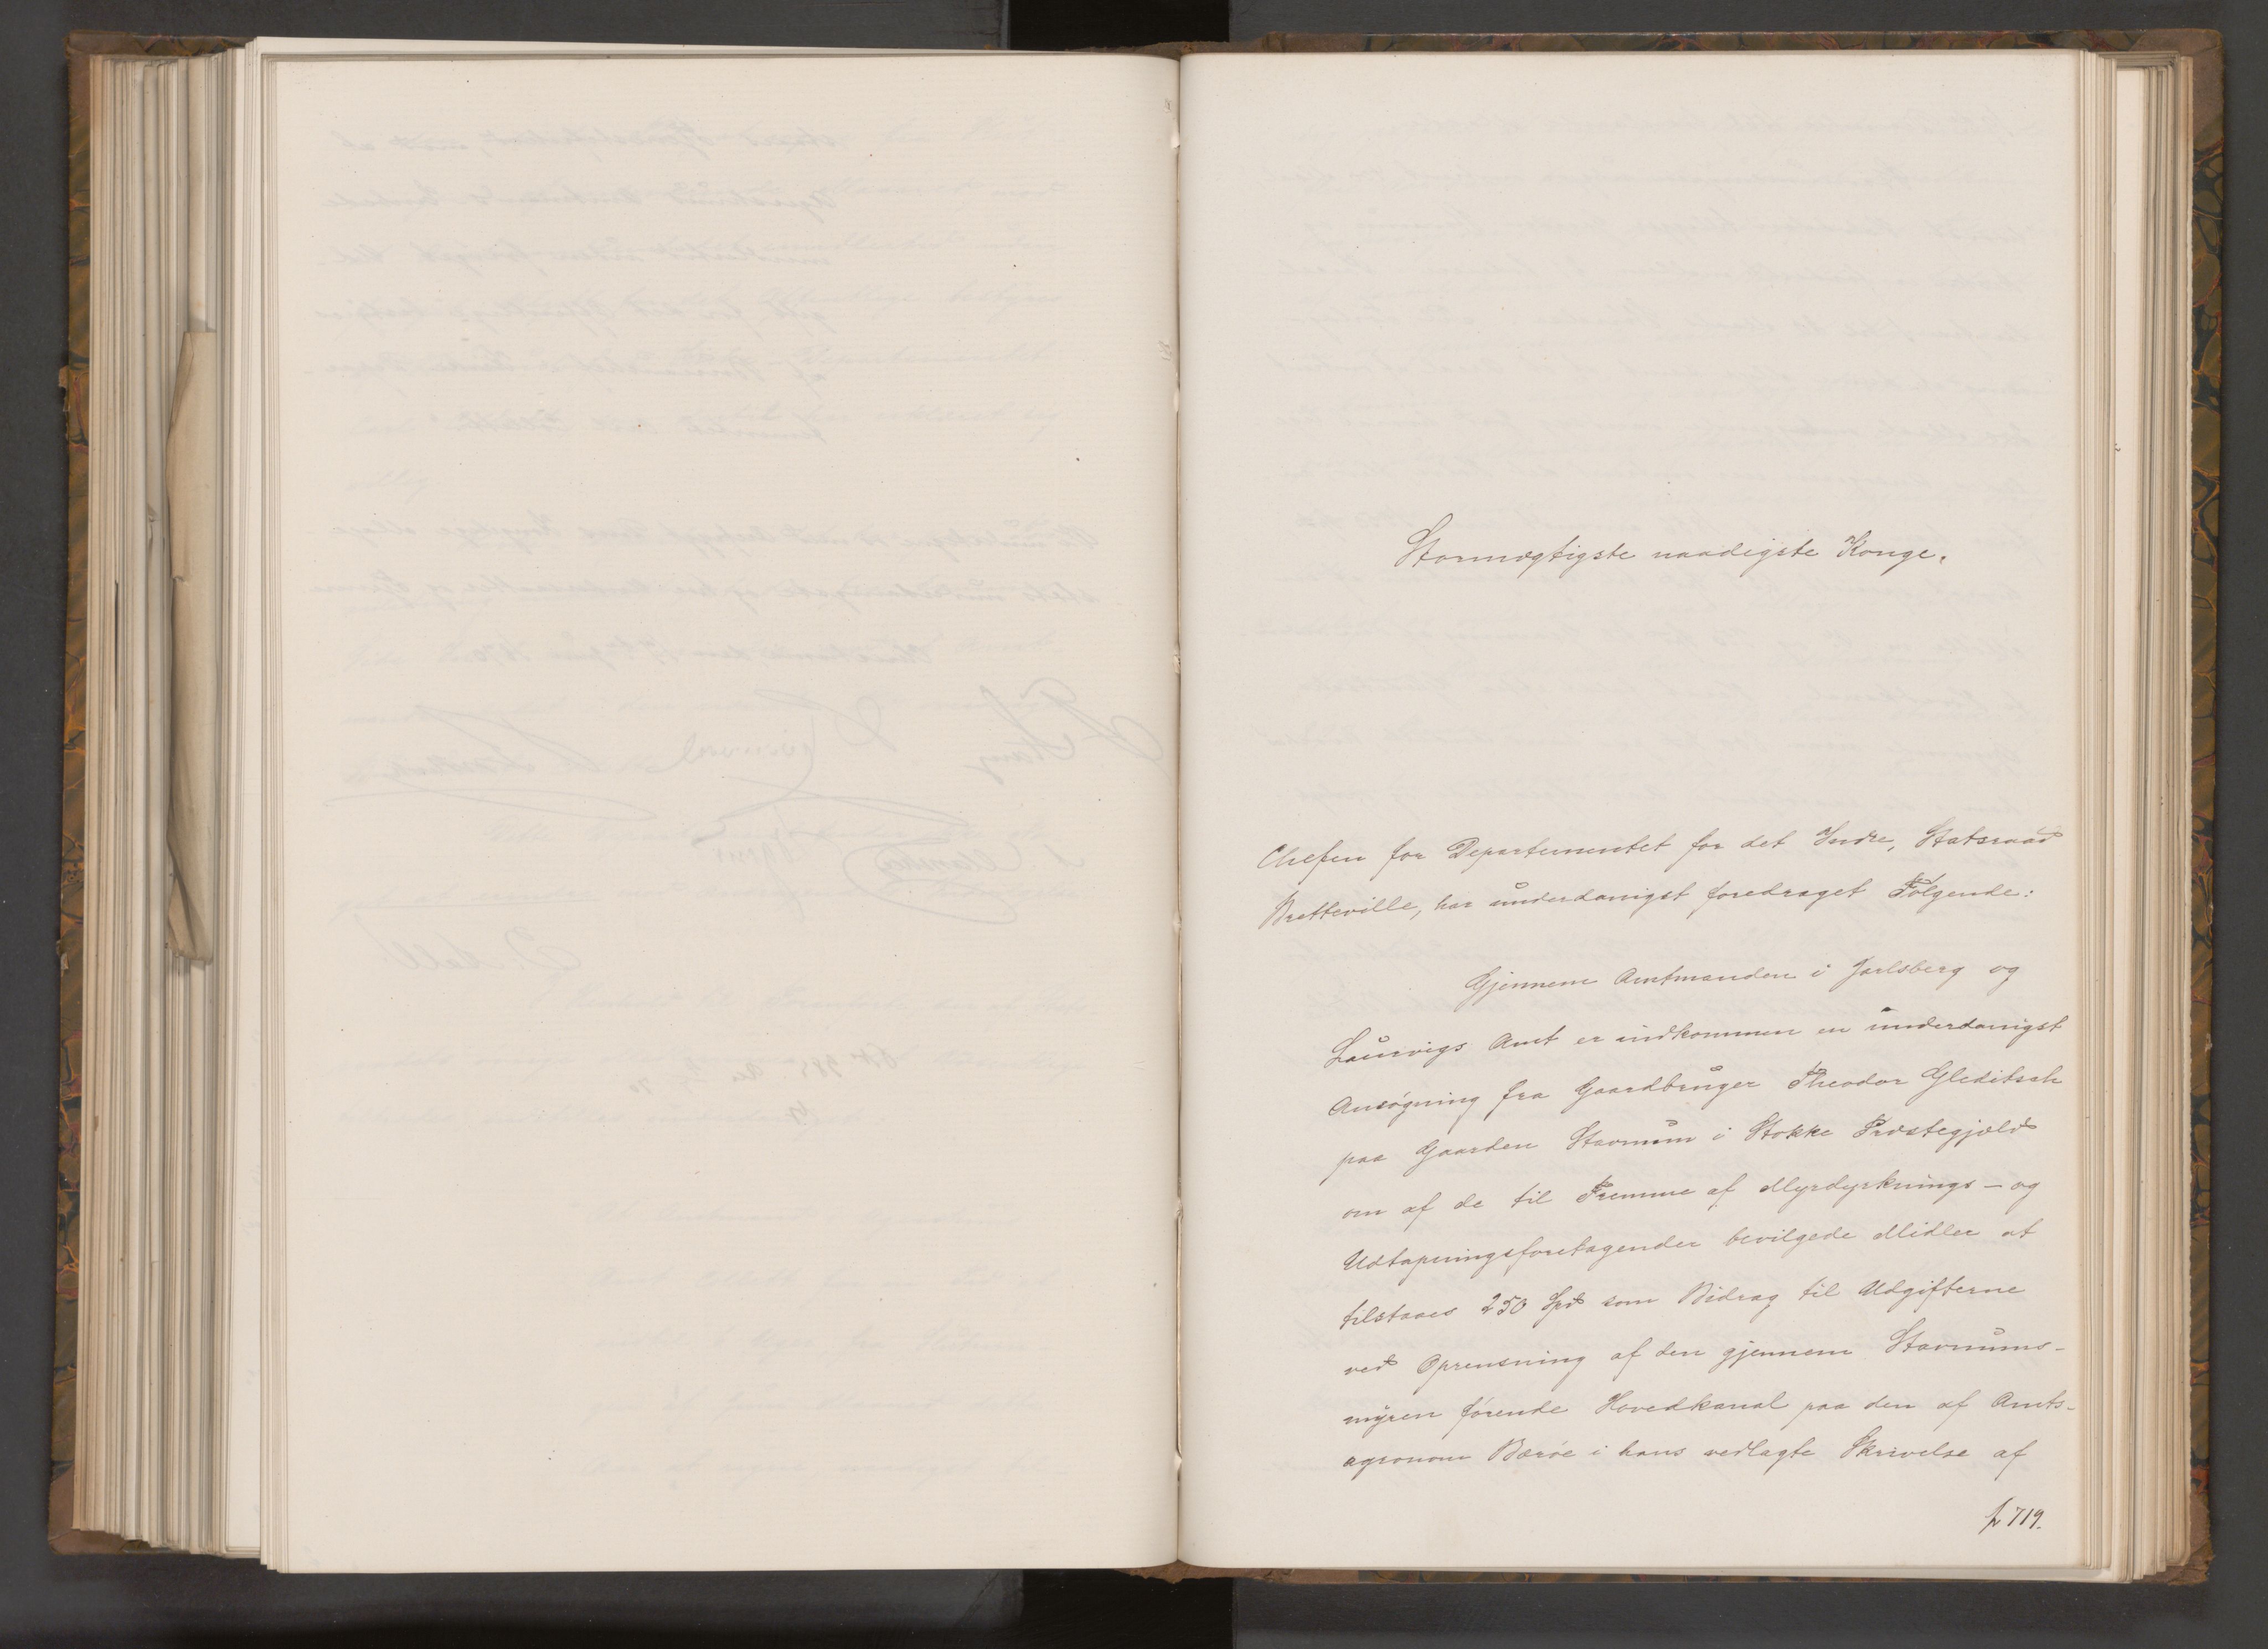 Stormægtigste naadigste Konge.
Chefen for Departementet for det Indre, Statsraad
Bretteville, har underdanigst foredraget Følgende:
Gjennem Amtmanden i Jarlsberg og
Laurvigs Amt er indkommen en underdanigst
Ansøgning fra Gaardbruger Theodor Gleditsch
paa Gaarden Stavnum i Stokke Præstegjæld
om af de til Fremme af Myrdyrknings- og
Udtapningsforetagender bevilgede Midler at
tilstaaes 250 Spd som Bidrag til Udgifterne
ved Oprensning af den gjennem Stavnums-
myren førende Hovedkanal paa den af Amts-
agronom Barøe i hans vedlagte Skrivelse af
719.